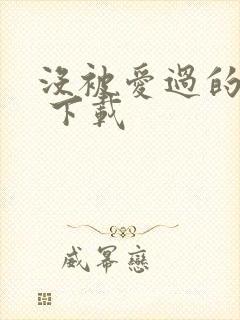 沒被愛過的
下載
威冪戀